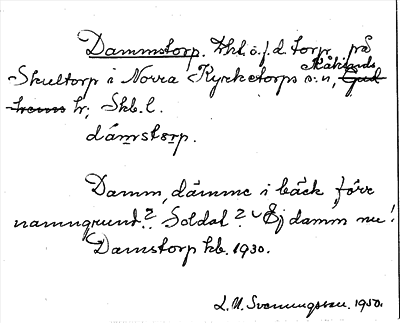 Dammstorp. tkl. ö. f. d. torp, på
Skultorp i Norra Kyrketorps s:n, Kåkinds
hr; Skb. l.
dám̩storp.
Damm, dämme i bäck förr
namngrund? Soldat? Ej damm nu!
Damstorp kb. 1930.
L. M. Svenungsson. 1950.